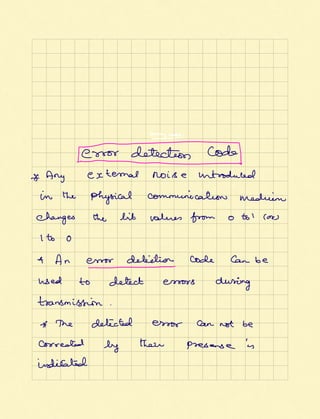 error detection Code
* Any external noise introduced
in the physical communication medium
changes the bit values from 0 to 1 (or)
1 to 0
* An error detection Code Can be
used to detect errors during
transmission.
* The detected error Can not be
Corrected by their presense is
indicated